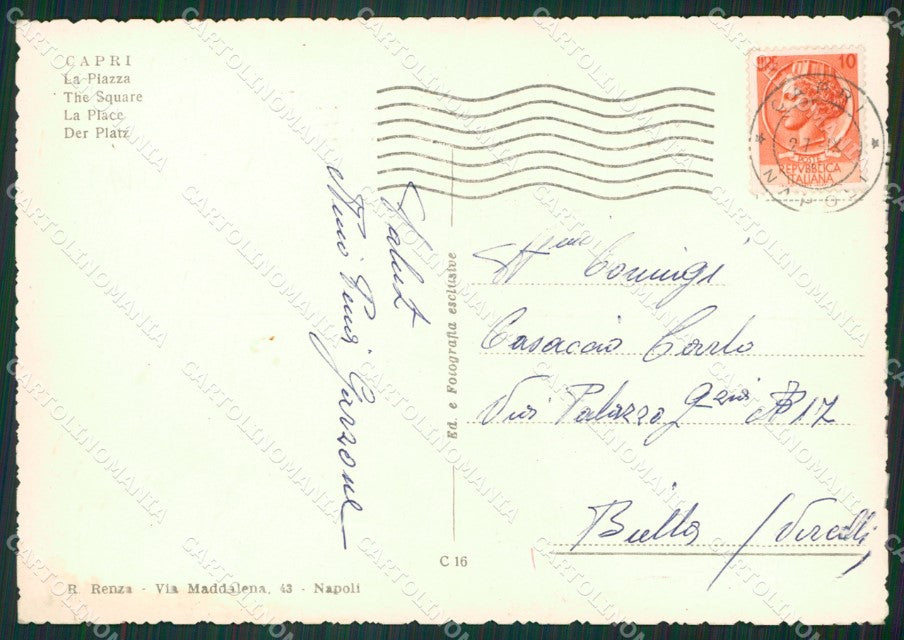 CAPRI
La Piazza
The Square
La Place
Der Platz
LIRE 10
POSTE
REPVBBLICA
ITALIANA
CAPRI
NAPOLI
Saluti
Garzone
Ed. e Fotografia esclusive
Coniugi
Casaccio Carlo
Via Palazzo 17
Biella (Vercelli)
C 16
R. Renza - Via Maddalena, 43 - Napoli
CARTOLINOMANIA